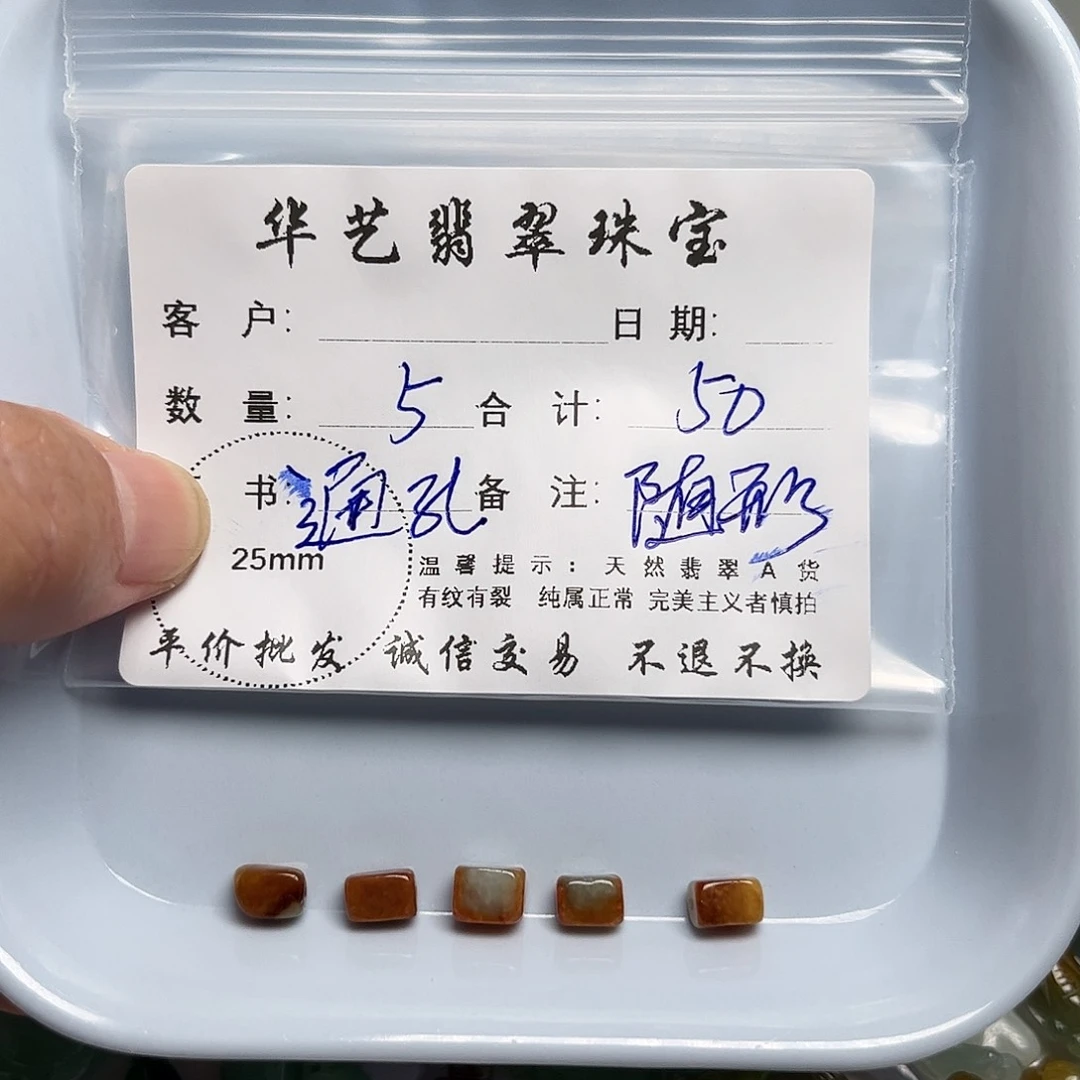 华艺翡翠珠宝
客 户： 日 期：
数 量： 5 合 计： 50
书： 通孔 备 注： 随形
25mm
温馨提示：天然翡翠A货
有纹有裂 纯属正常 完美主义者慎拍
平价批发 诚信交易 不退不换